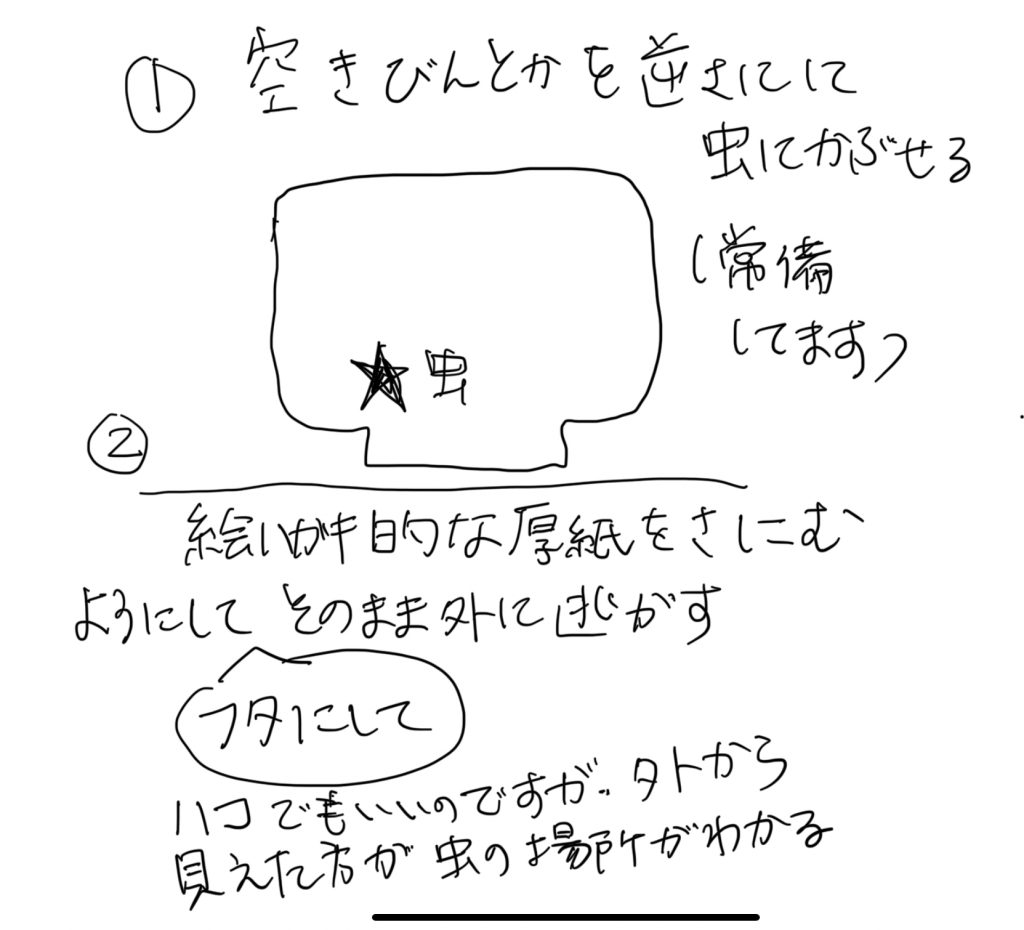 ① 空きびんとかを逆さにして
虫にかぶせる
(常備
してます)
虫
②
絵はがき的な厚紙をさしこむ
ようにして そのまま外に逃がす
フタにして
ハコでもいいのですが、外から
見えた方が虫の場所がわかる